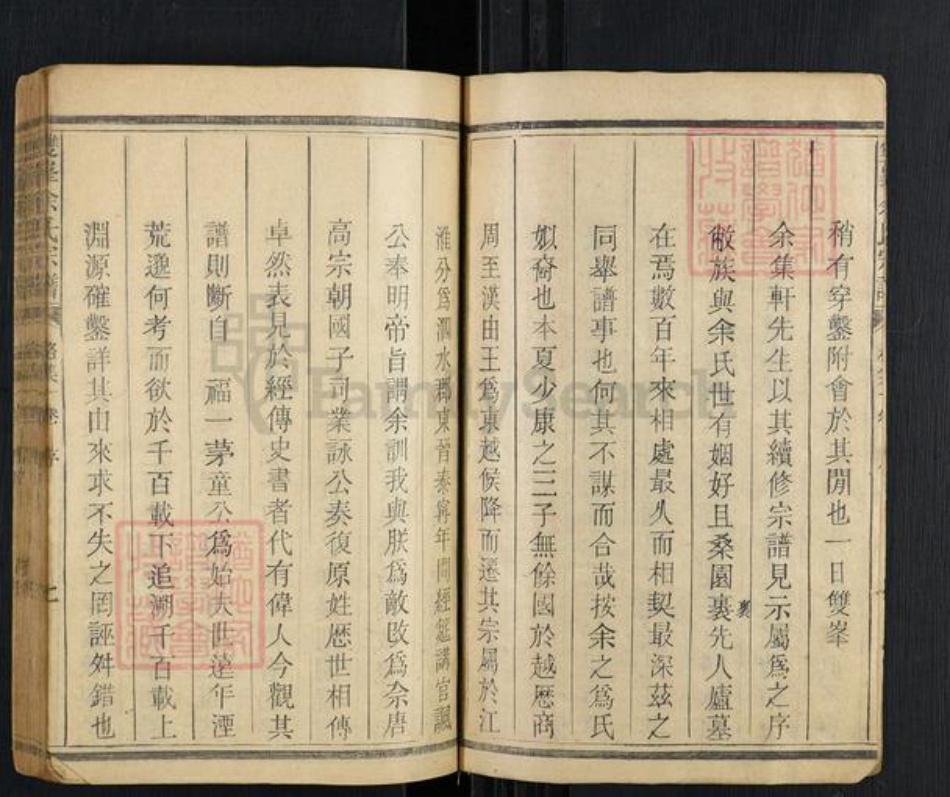 稍有穿鑿附會於其間也一日雙峯
余集軒先生以其續修宗譜見示屬爲之序
敝族與余氏世有姻好且桑園裏先人廬墓
裏
在焉數百年來相處最久而相契最深茲之
同舉譜事也何其不謀而合哉按余之爲氏
姒裔也本夏少康之三子無餘國於越歷商
周至漢由王爲東越侯降而遷其宗屬於江
淮分爲泗水郡東晉泰寧年間經筵講官諷
公奉明帝旨謂余訓我與朕爲敵改爲佘唐
高宗朝國子司業詠公奏復原姓歷世相傳
卓然表見於經傳史書者代有偉人今觀其
譜則斷自 福一茅童公爲始夫世遠年湮
荒邈何考而欲於千百載下追溯千百載上
淵源確鑿詳其由來求不失之罔誣舛錯也
雙峯余氏宗譜
序
FamilySearch